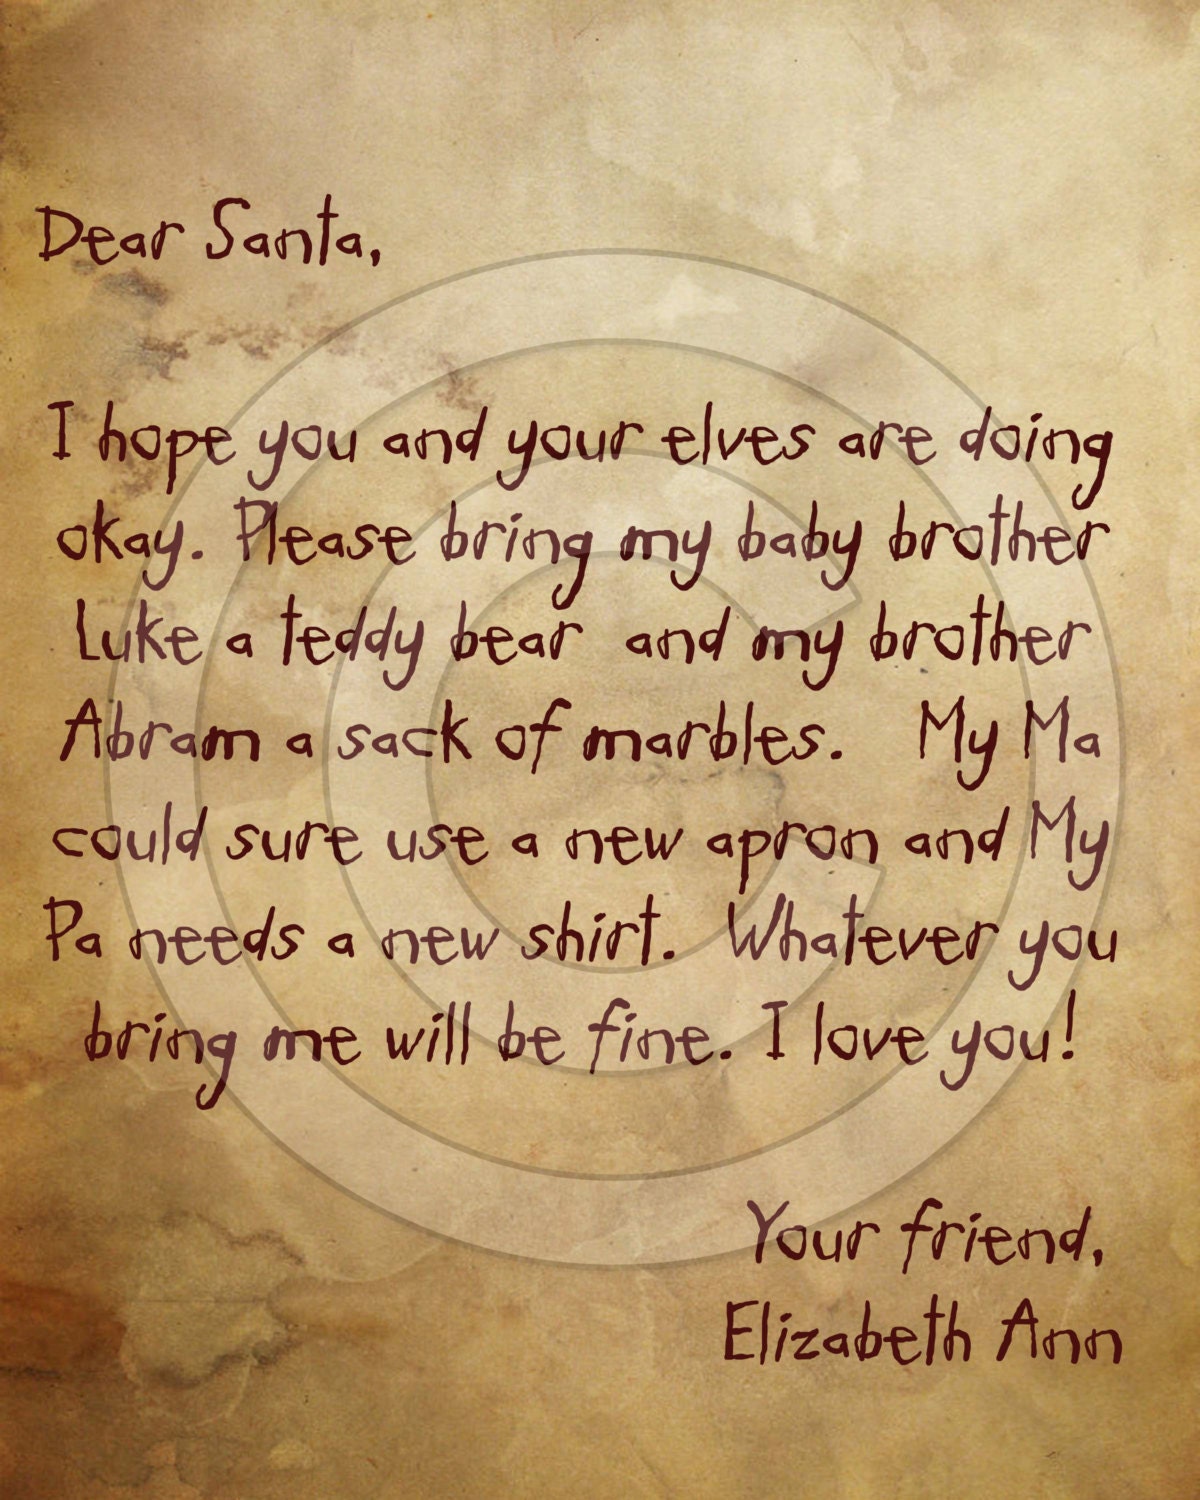 Dear Santa,
I hope you and your elves are doing
okay. Please bring my baby brother
Luke a teddy bear and my brother
Abram a sack of marbles. My Ma
could sure use a new apron and My
Pa needs a new shirt. Whatever you
bring me will be fine. I love you!
Your friend,
Elizabeth Ann